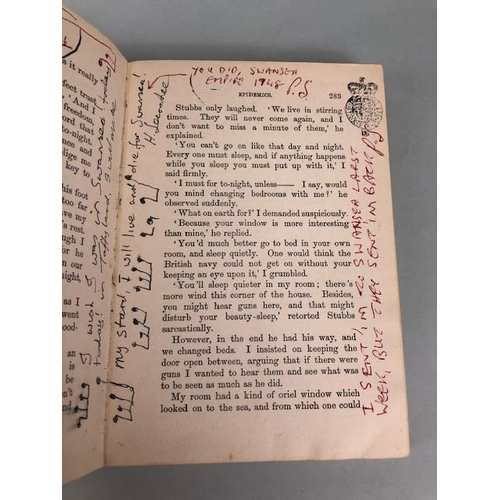 YOU DID, SWANSEA
EMPIRE 1948 P.S
EPIDEMICS. 283
Stubbs only laughed. 'We live in stirring
times. They will never come again, and I
don't want to miss a minute of them,' he
explained.
'You can't go on like that day and night.
Every one must sleep, and if anything happens
while you sleep you must put up with it,' I
said firmly.
'I must for to-night, unless—— I say, would
you mind changing bedrooms with me?' he
observed suddenly.
'What on earth for?' I demanded suspiciously.
'Because your window is more interesting
than mine,' he replied.
'You'd much better go to bed in your own
room, and sleep quietly. One would think the
British navy could not get on without your
keeping an eye upon it,' I grumbled.
'You'll sleep quieter in my room; there's
more wind this corner of the house. Besides,
you might hear guns here, and that might
disturb your beauty-sleep,' retorted Stubbs
sarcastically.
However, in the end he had his way, and
we changed beds. I insisted on keeping the
door open between, arguing that if there were
guns I wanted to hear them and see what was
to be seen as much as he did.
My room had a kind of oriel window which
looked on to the sea, and from which one could
My Stars, I will live and die for Swansea!
I wish I was in Swansea today
I SENT, IM TO SWANSEA LARST
WEEK, BUT THEY SENT IM BACK P.S
it really
feet trust
'And
freedom,
ord that
to-night.
ence and
lige me
key to
is foot
too far
ve my
rest.
ough I
or he
our
night,
as I
went